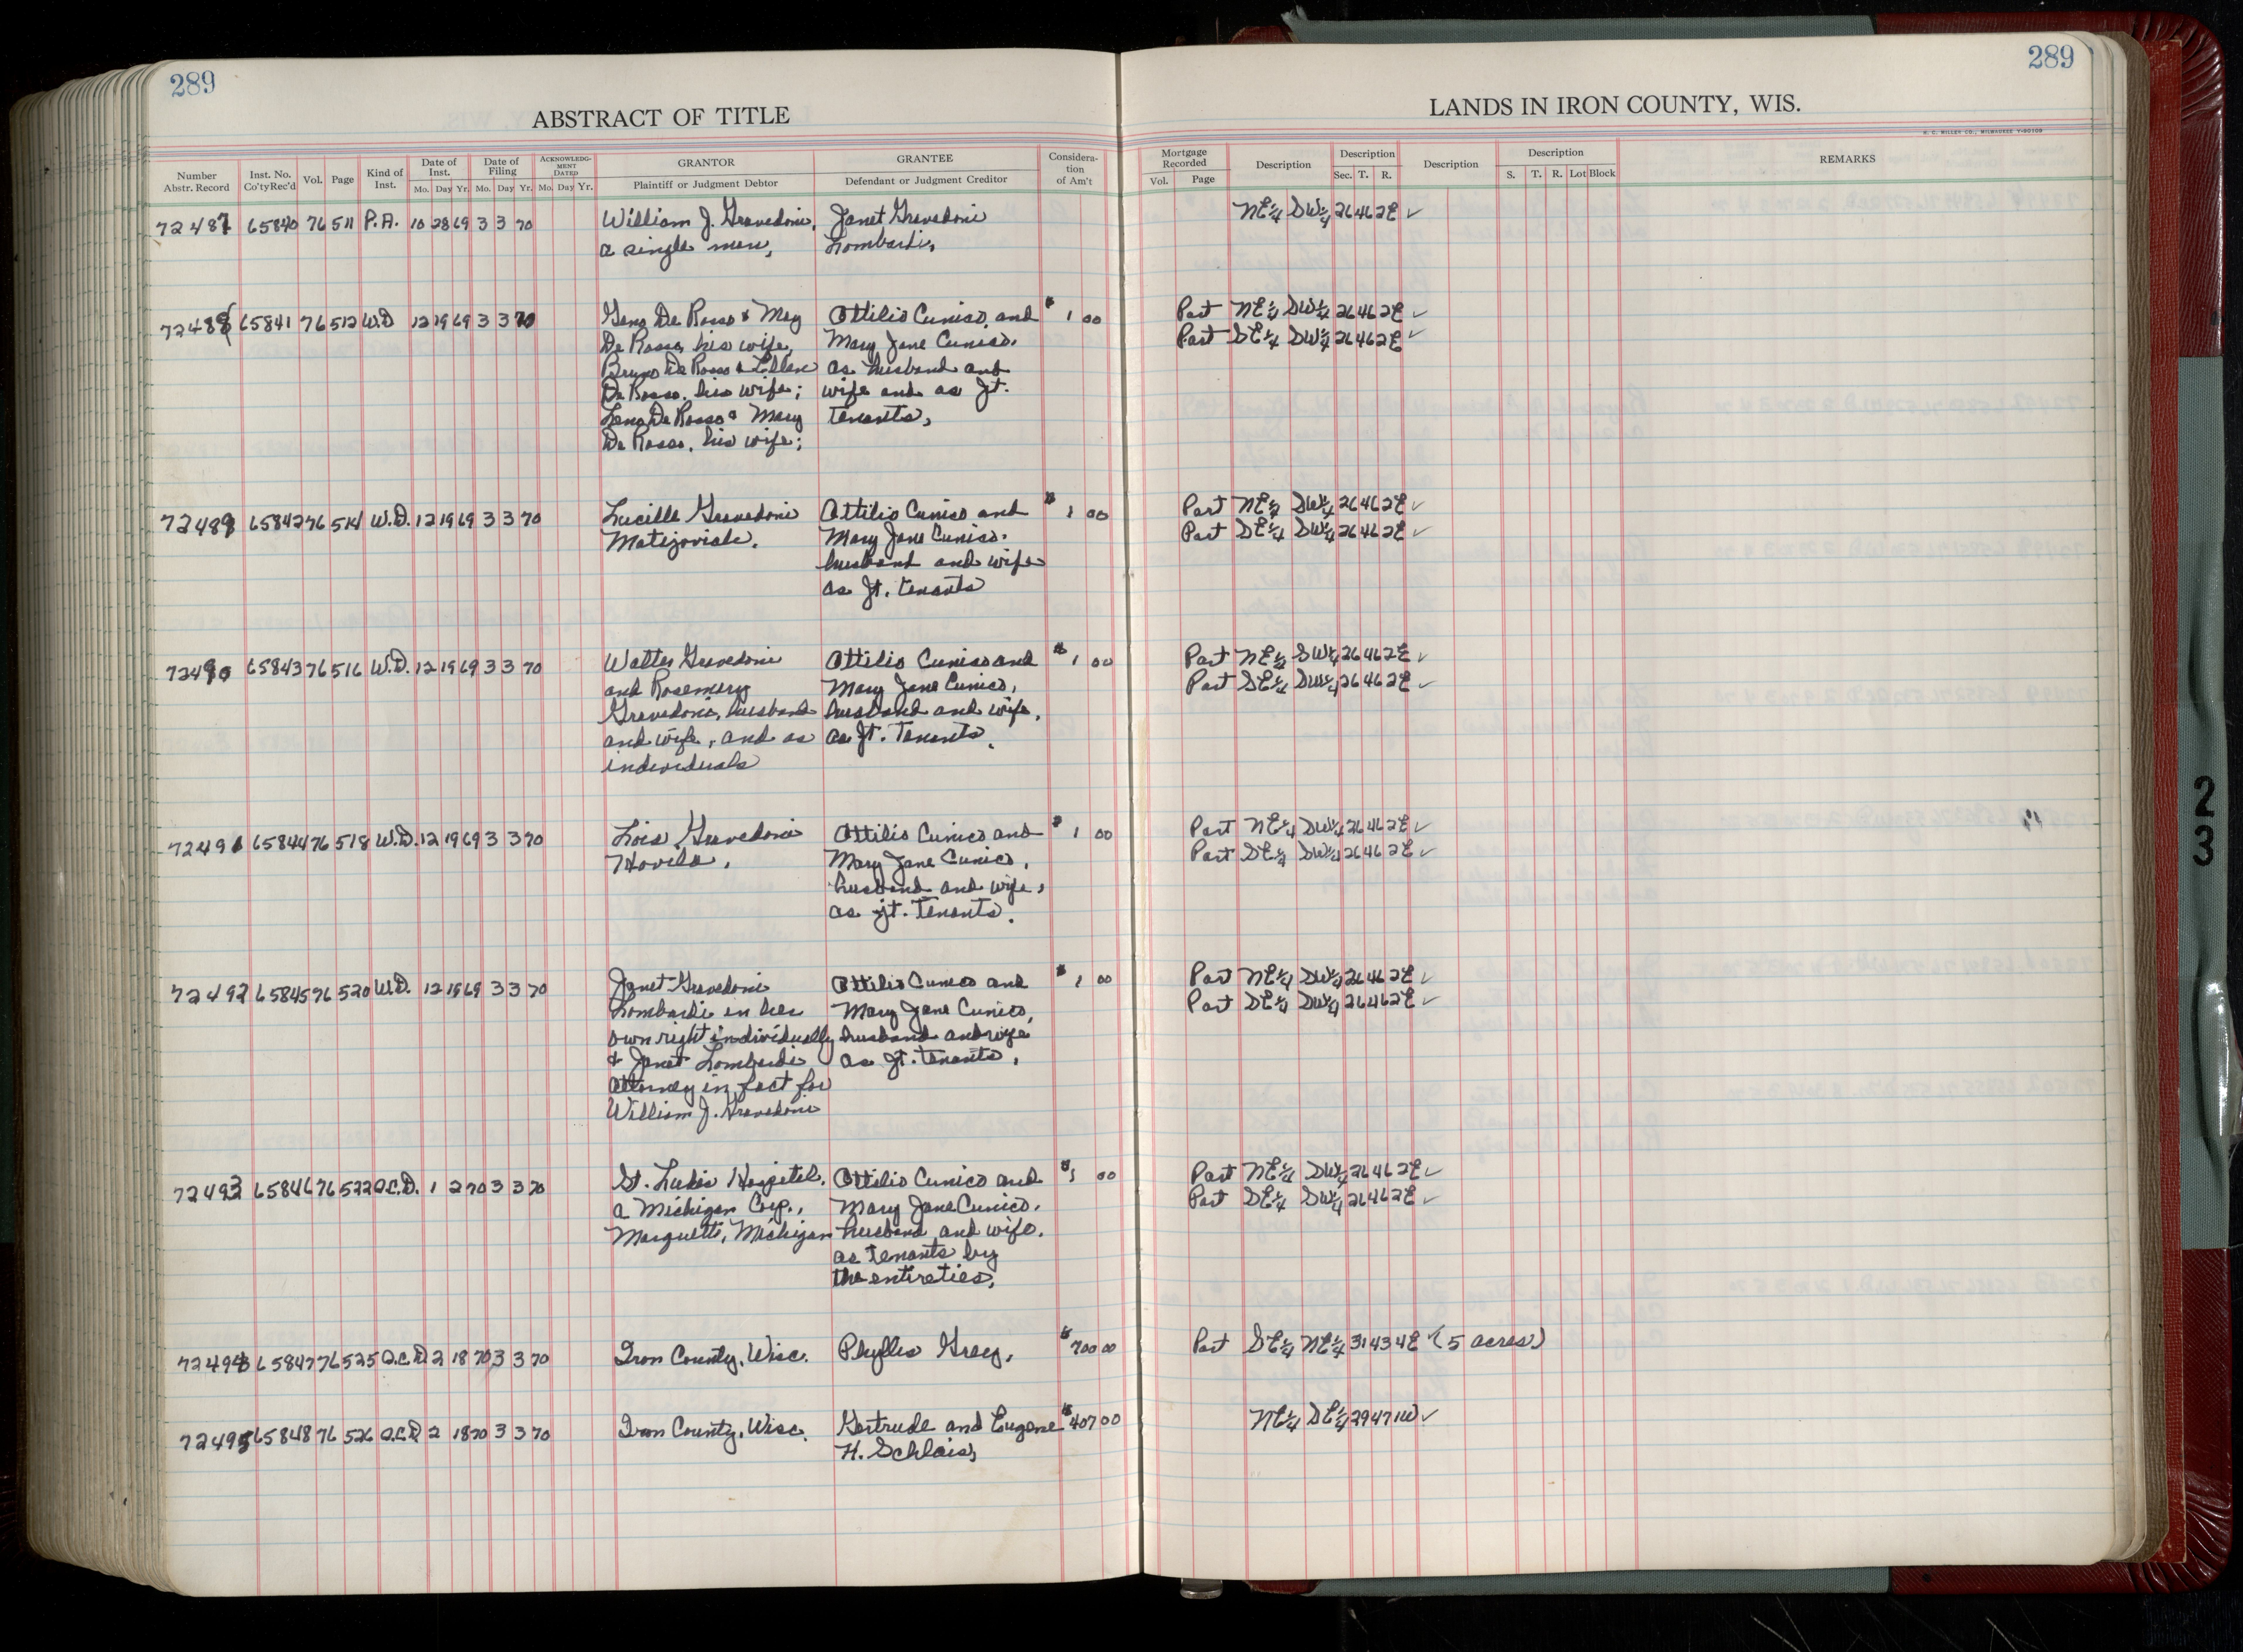 289
289
ABSTRACT OF TITLE
LANDS IN IRON COUNTY, WIS.
H. C. MILLER CO., MILWAUKEE Y-90109
Number Abstr. Record
Inst. No. Co'ty Rec'd
Vol.
Page
Kind of Inst.
Date of Inst. Mo. Day Yr.
Date of Filing Mo. Day Yr.
ACKNOWLEDG-MENT DATED Mo. Day Yr.
GRANTOR Plaintiff or Judgment Debtor
GRANTEE Defendant or Judgment Creditor
Considera-tion of Am't
Mortgage Recorded Vol. Page
Description
Description Sec. T. R.
Description
Description S. T. R. Lot Block
REMARKS
72487 65840 76 511 P.A. 10 28 69 3 3 70 William J. Gravedoni, Janet Gravedoni NE¼ SW¼ 26 46 2E ✓
a single man, Lombardi,
72488 65841 76 512 W.D 12 19 69 3 3 70 Geno De Rosso & May Attilio Cunico, and $ 1 00 Part NE¼ SW¼ 26 46 2E ✓
De Rosso, his wife, Mary Jane Cunico, Part SE¼ SW¼ 26 46 2E ✓
Bruno De Rosso & Lillian as husband and
De Rosso, his wife; wife and as Jt.
Leno De Rosso & Mary tenants,
De Rosso, his wife;
72489 65842 76 514 W.D. 12 19 69 3 3 70 Lucille Gravedoni Attilio Cunico and $ 1 00 Part NE¼ SW¼ 26 46 2E ✓
Mary Jane Cunico, Part SE¼ SW¼ 26 46 2E ✓
husband and wife
as Jt. tenants
72490 65843 76 516 W.D. 12 19 69 3 3 70 Walter Gravedoni Attilio Cunico and $ 1 00 Part NE¼ SW¼ 26 46 2E ✓
and Rosemary Mary Jane Cunico, Part SE¼ SW¼ 26 46 2E ✓
Gravedoni, husband husband and wife,
and wife, and as as Jt. Tenants.
individuals
72491 65844 76 518 W.D. 12 19 69 3 3 70 Lois Gravedoni Attilio Cunico and $ 1 00 Part NE¼ SW¼ 26 46 2E ✓
Hovila, Mary Jane Cunico, Part SE¼ SW¼ 26 46 2E ✓
husband and wife,
as jt. Tenants.
72492 65845 76 520 W.D. 12 19 69 3 3 70 Janet Gravedoni Attilio Cunico and $ 1 00 Part NE¼ SW¼ 26 46 2E ✓
Lombardi in her Mary Jane Cunico, Part SE¼ SW¼ 26 46 2E ✓
own right individually husband and wife
& Janet Lombardi as Jt. tenants,
attorney in fact for
William J. Gravedoni
72493 65846 76 522 Q.C.D. 1 2 70 3 3 70 St. Lukes Hospital, Attilio Cunico and $ 1 00 Part NE¼ SW¼ 26 46 2E ✓
a Michigan Corp., Mary Jane Cunico, Part SE¼ SW¼ 26 46 2E ✓
Marquette, Michigan husband and wife,
as tenants by
the entireties,
72494 65847 76 525 Q.C.D. 2 18 70 3 3 70 Iron County, Wisc. Phyllis Grey, $ 700 00 Part SE¼ NE¼ 31 43 4E ✓ (5 acres)
72495 65848 76 526 Q.C.D. 2 18 70 3 3 70 Iron County, Wisc. Gertrude and Eugene $ 407 00 NE¼ SE¼ 29 47 1W ✓
H. Schlais,
23